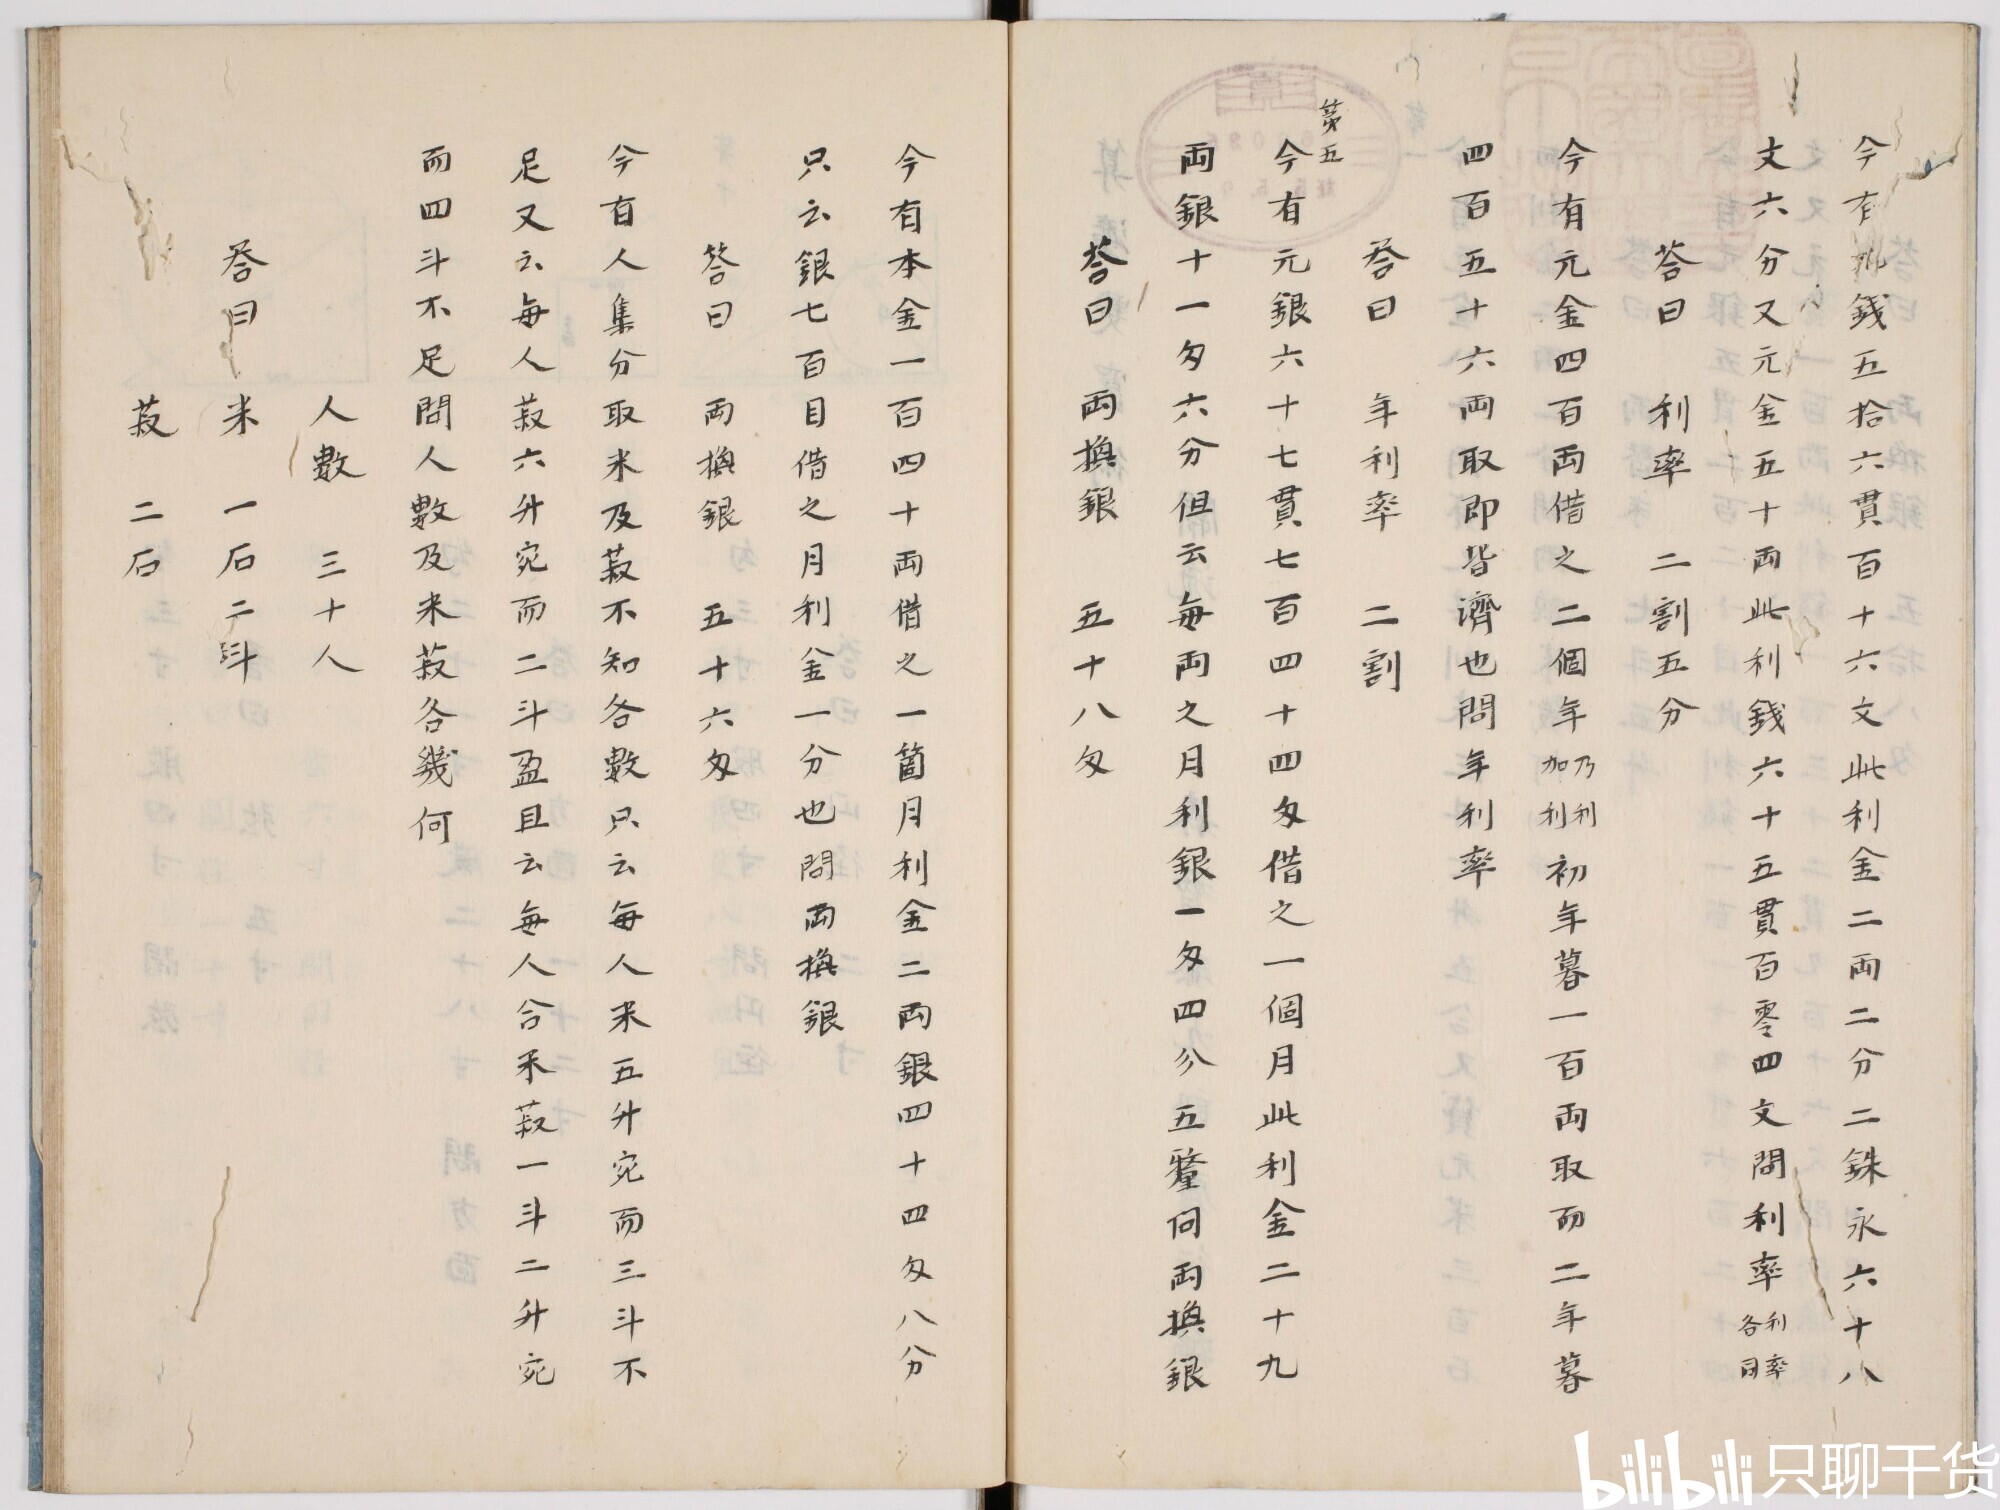 今有 銭五拾六貫百十六文此利金二両二分二銖永六十八
文六分又元金五十両此利銭六十五貫百零四文問利率利率各同
荅曰 利率 二割五分
今有元金四百両借之二個年乃利加利初年暮一百両取而二年暮
四百五十六両取即皆濟也問年利率
荅曰 年利率 二割
第五
今有元銀六十七貫七百四十四匁借之一個月此利金二十九
両銀十一匁六分但云毎両之月利銀一匁四分五釐问両換銀
荅曰 両換銀 五十八匁
今有本金一百四十両借之一箇月利金二両銀四十四匁八分
只云銀七百目借之月利金一分也問両換銀
荅曰 両換銀 五十六匁
今有人集分取米及菽不知各數只云毎人米五升宛而三斗不
足又云毎人菽六升宛而二斗盈且云毎人合米菽一斗二升宛
而四斗不足問人數及米菽各幾何
人數 三十人
荅曰 米 一石二斗
菽 二石
bilibili 只聊干货